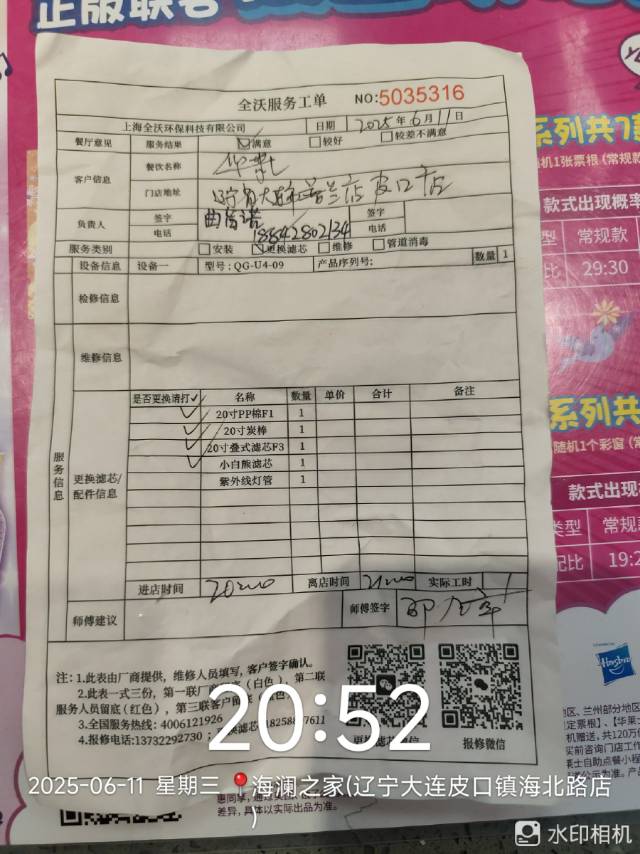 正版联名
全沃服务工单 NO:5035316
上海全沃环保科技有限公司 日期 2025年6月11日
餐厅意见 服务结果 满意 较好 较差不满意
客户信息 餐饮名称 华莱士
门店地址 辽宁省大连普兰店皮口店
负责人 签字 签字
电话 18842802134 电话
服务类别 安装 更换滤芯 维修 管道消毒
设备信息 设备一 型号:QG-U4-09 产品序列号: 数量 1
检修信息
维修信息
服务信息
更换滤芯/配件信息
是否更换请打✓ 名称 数量 单价 合计 备注
✓ 20寸PP棉F1 1
✓ 20寸炭棒 1
✓ 20寸叠式滤芯F3 1
✓ 小白熊滤芯 1
紫外线灯管 1
进店时间 20:00 离店时间 21:00 实际工时 1
师傅建议 师傅签字
注:1.此表由厂商提供,维修人员填写,客户签字确认。
2.此表一式三份,第一联厂 (白色),第二联
服务人员留底(红色),第三联客户
3.全国服务热线:4006121926
4.报修电话:13732292730
报修微信
20:52
2025-06-11 星期三 海澜之家(辽宁大连皮口镇海北路店
)
水印相机
系列共7款
机1张票根(常规款
款式出现概率
型 常规款
比 29:30
系列共
随机1个彩窗
款式出现
类型 常规款
配比 19:2
Hasbro
差异,具体以实际出品为准。